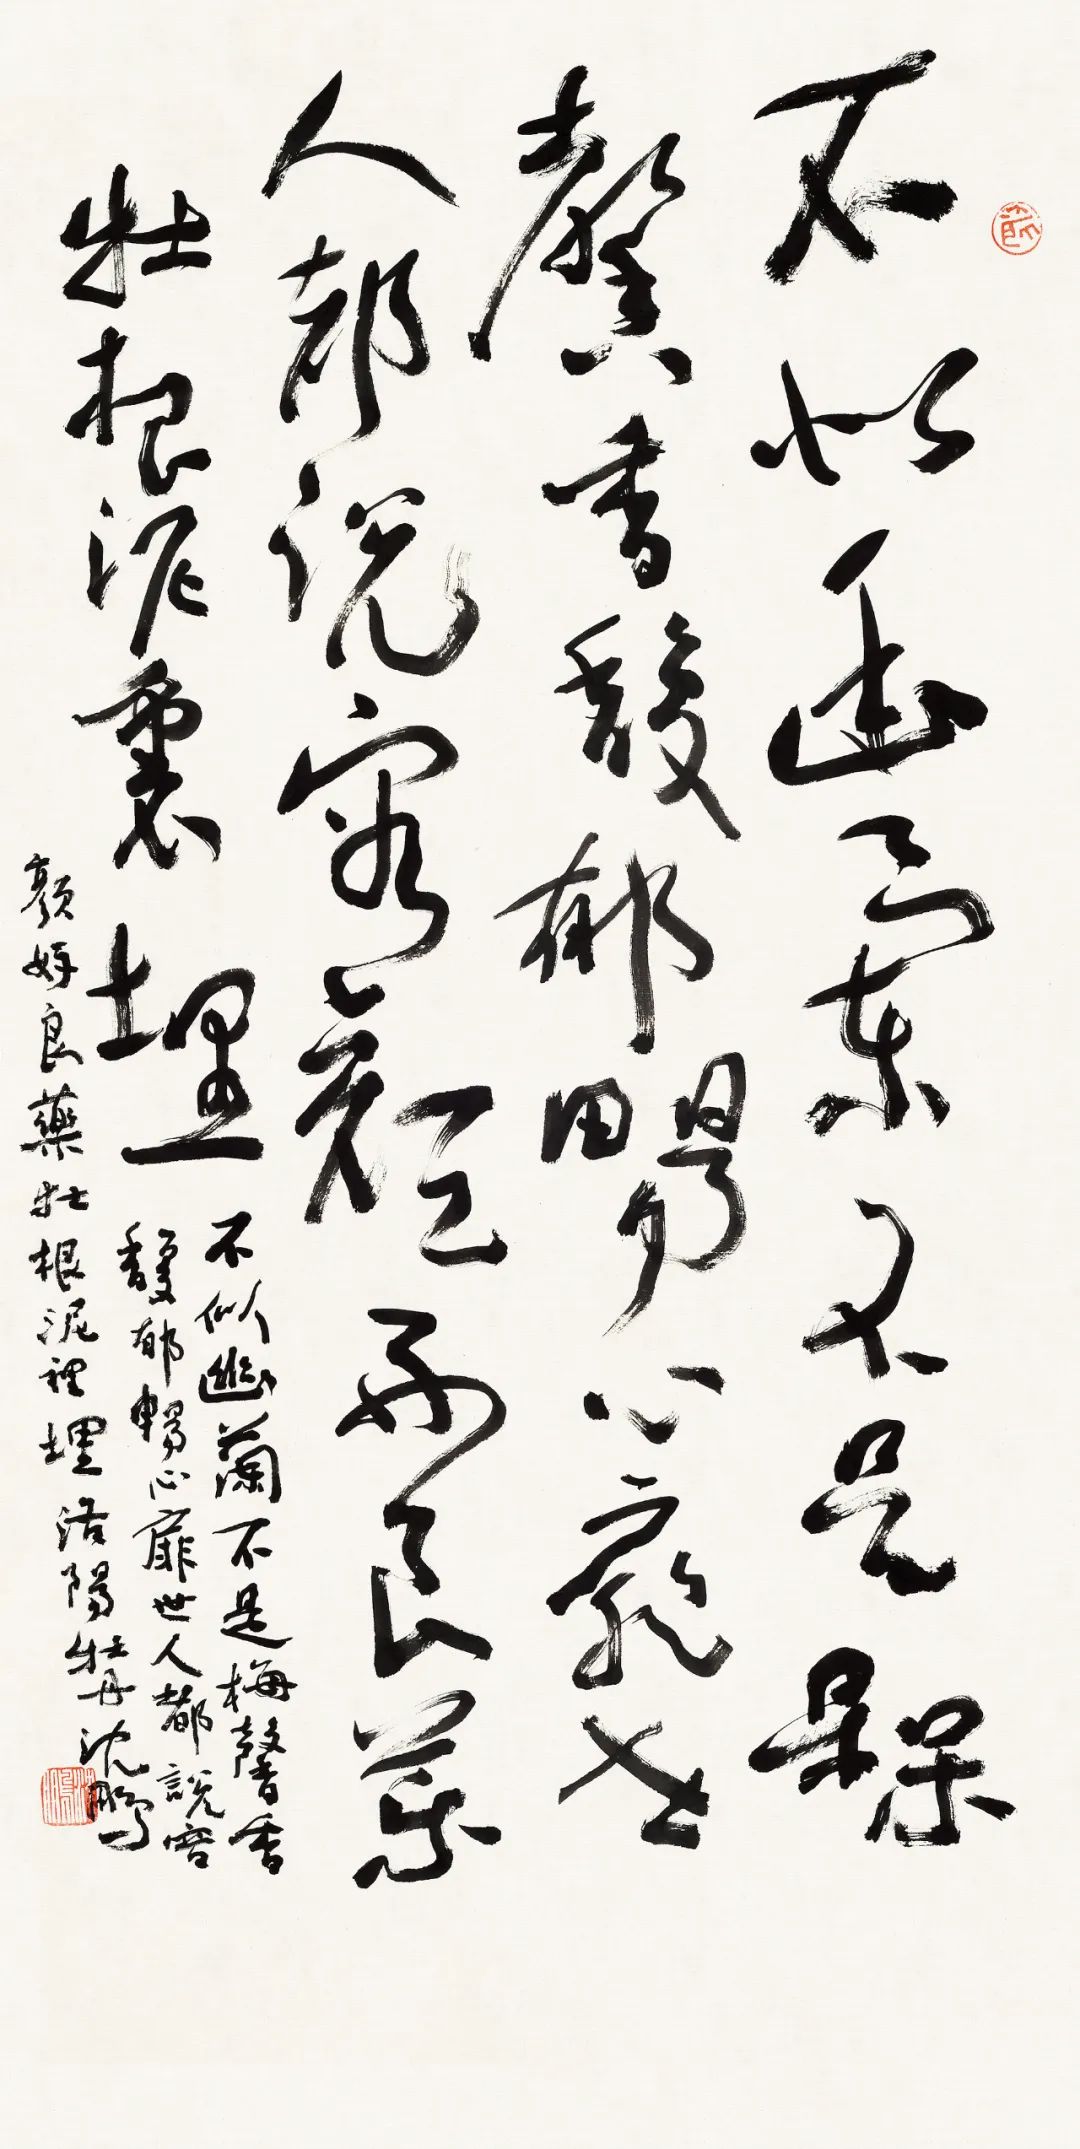 不似幽蘭不是槑
馨香馥郁暢心扉世
人都説容顔好良藥
牡根泥裏埋
不似幽蘭不是梅馨香
馥郁暢心扉世人都說容
顏好良藥牡根泥裡埋洛陽牡丹沈鵬